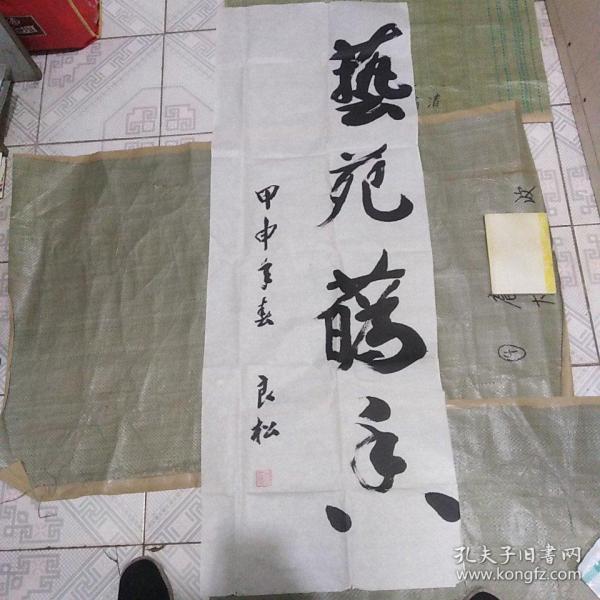 藝苑香
甲申年春 良松
孔夫子旧書网
www.kongfz.com